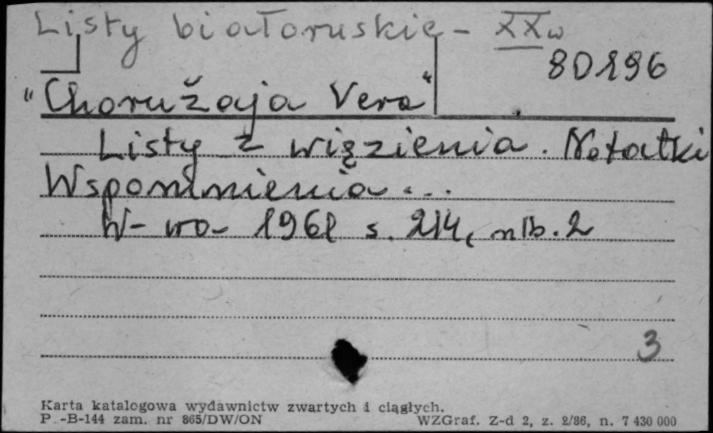 Listy białoruskie - XX w
80196
"Choružaja Vera"
Listy z więzienia. Notatki
Wspomnienia...
W-wa 1961 s. 214, nlb. 2
3
Karta katalogowa wydawnictw zwartych i ciągłych.
P.-B-144 zam. nr 865/DW/ON WZGraf. Z-d 2, z. 2/86, n. 7 430 000